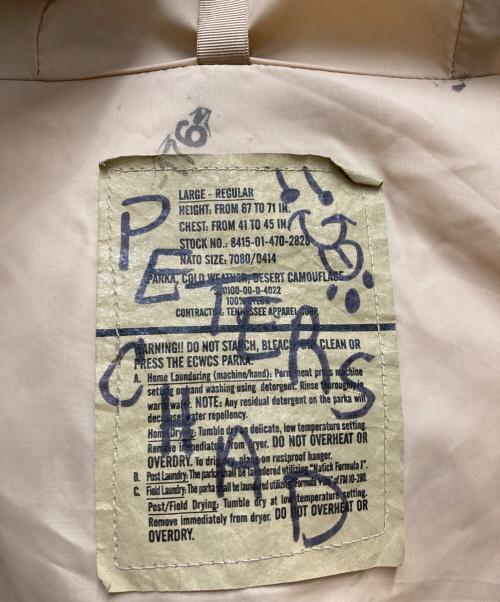 76
LARGE - REGULAR
HEIGHT: FROM 67 TO 71 IN.
CHEST: FROM 41 TO 45 IN.
STOCK NO.: 8415-01-470-2828
NATO SIZE: 7080/0414
PARKA, COLD WEATHER, DESERT CAMOUFLAGE
0100-00-D-4022
100% NYLON
CONTRACTOR TENNESSEE APPAREL CORP.
PETERS
WARNING!! DO NOT STARCH, BLEACH, DRY CLEAN OR
PRESS THE ECWCS PARKA.
A. Home Laundering (machine/hand): Permanent press machine
setting and washing using detergent. Rinse thoroughly in
warm water. NOTE: Any residual detergent on the parka will
decrease water repellency.
Home Drying: Tumble dry on delicate, low temperature setting.
Remove immediately from dryer. DO NOT OVERHEAT OR
OVERDRY. To drip dry, place on rustproof hanger.
B. Post Laundry: The parka shall be laundered utilizing "Natick Formula I".
C. Field Laundry: The parka shall be laundered utilizing "Formula of FM 10-280.
Post/Field Drying: Tumble dry at low temperature setting.
Remove immediately from dryer. DO NOT OVERHEAT OR
OVERDRY.
CHAD